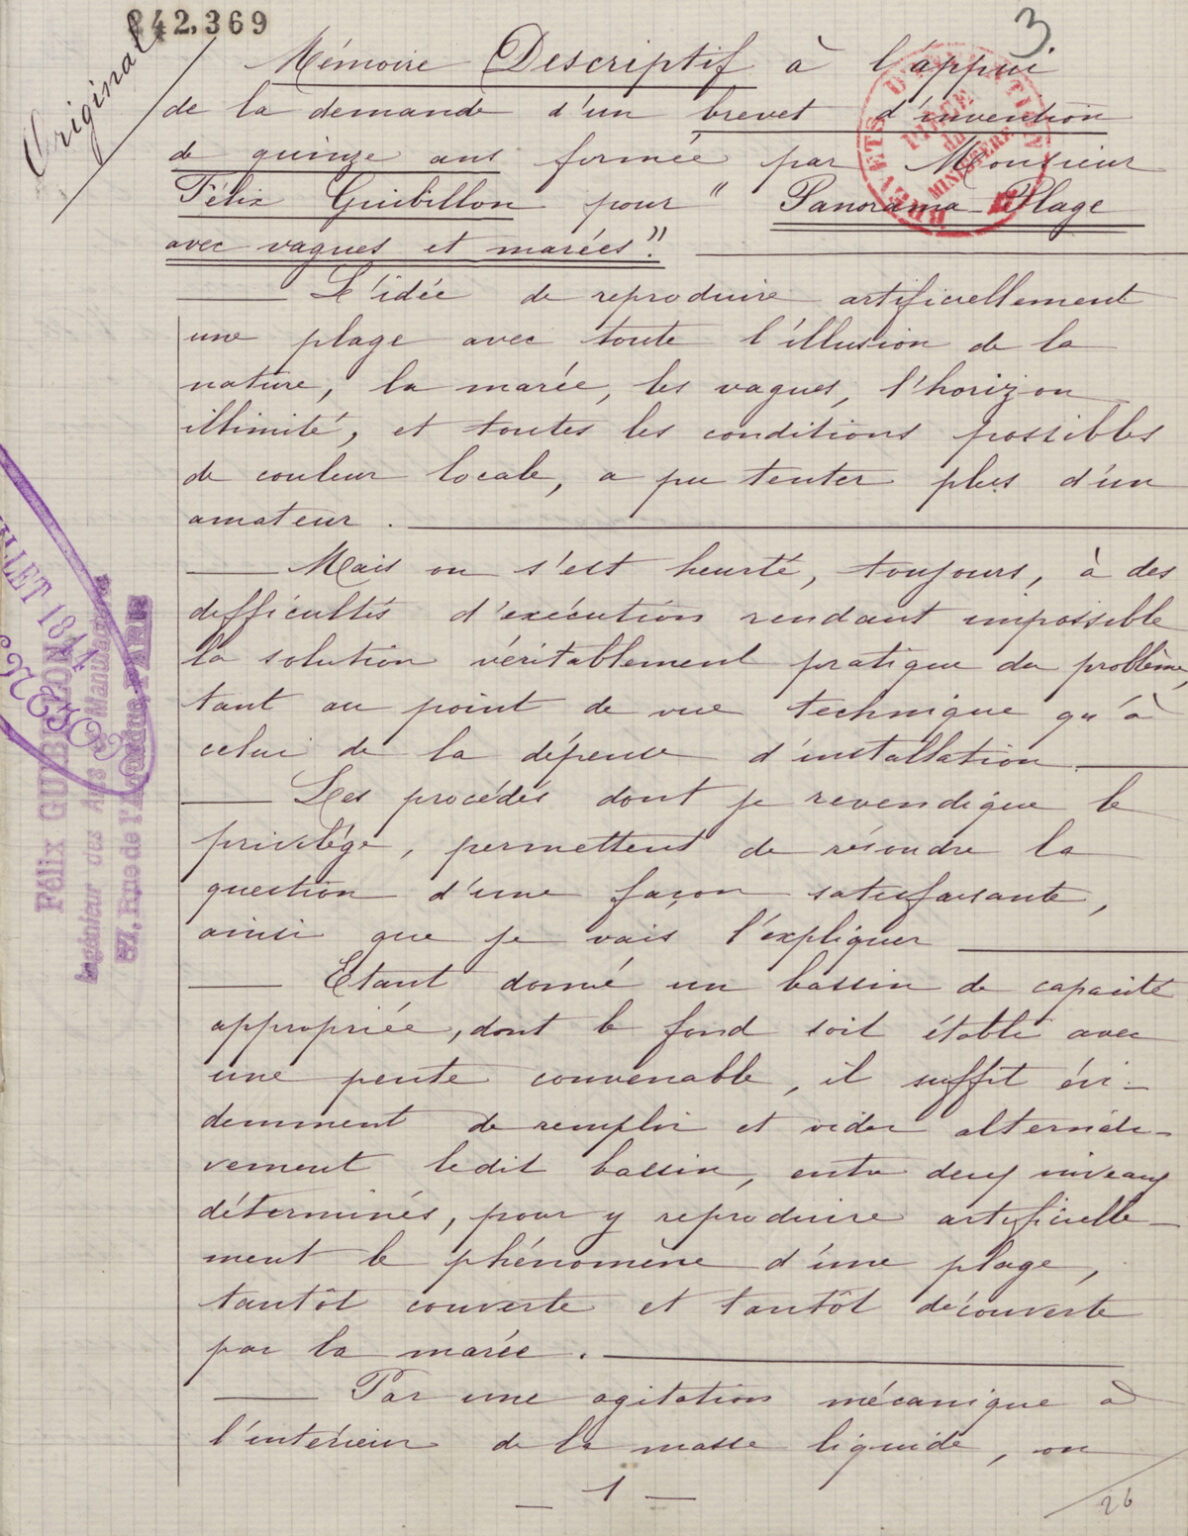 242,369
3
Original
Mémoire Descriptif à l'appui
de la demande d'un brevet d'invention
de quinze ans formée par Monsieur
Félix Guibillon pour " Panorama-Plage
avec vagues et marées".
L'idée de reproduire artificiellement
une plage avec toute l'illusion de la
nature, la marée, les vagues, l'horizon
illimité, et toutes les conditions possibles
de couleur locale, a pu tenter plus d'un
amateur.
Mais on s'est heurté, toujours, à des
difficultés d'exécution rendant impossible
la solution véritablement pratique du problème,
tant au point de vue technique qu'à
celui de la dépense d'installation
Les procédés dont je revendique le
privilège, permettent de résoudre la
question d'une façon satisfaisante,
ainsi que je vais l'expliquer
Etant donné un bassin de capacité
appropriée, dont le fond soit établi avec
une pente convenable, il suffit évi-
demment de remplir et vider alternati-
vement ledit bassin, entre deux niveaux
déterminés, pour y reproduire artificielle-
ment le phénomène d'une plage,
tantôt couverte et tantôt découverte
par la marée.
Par une agitation mécanique à
l'intérieur de la masse liquide, on
- 1 -
26
Félix GUIBILLON
Ingénieur des Arts & Manufactures
57, Rue de l'Aqueduc, PARIS
BREVETS D'INVENTION
MINISTÈRE